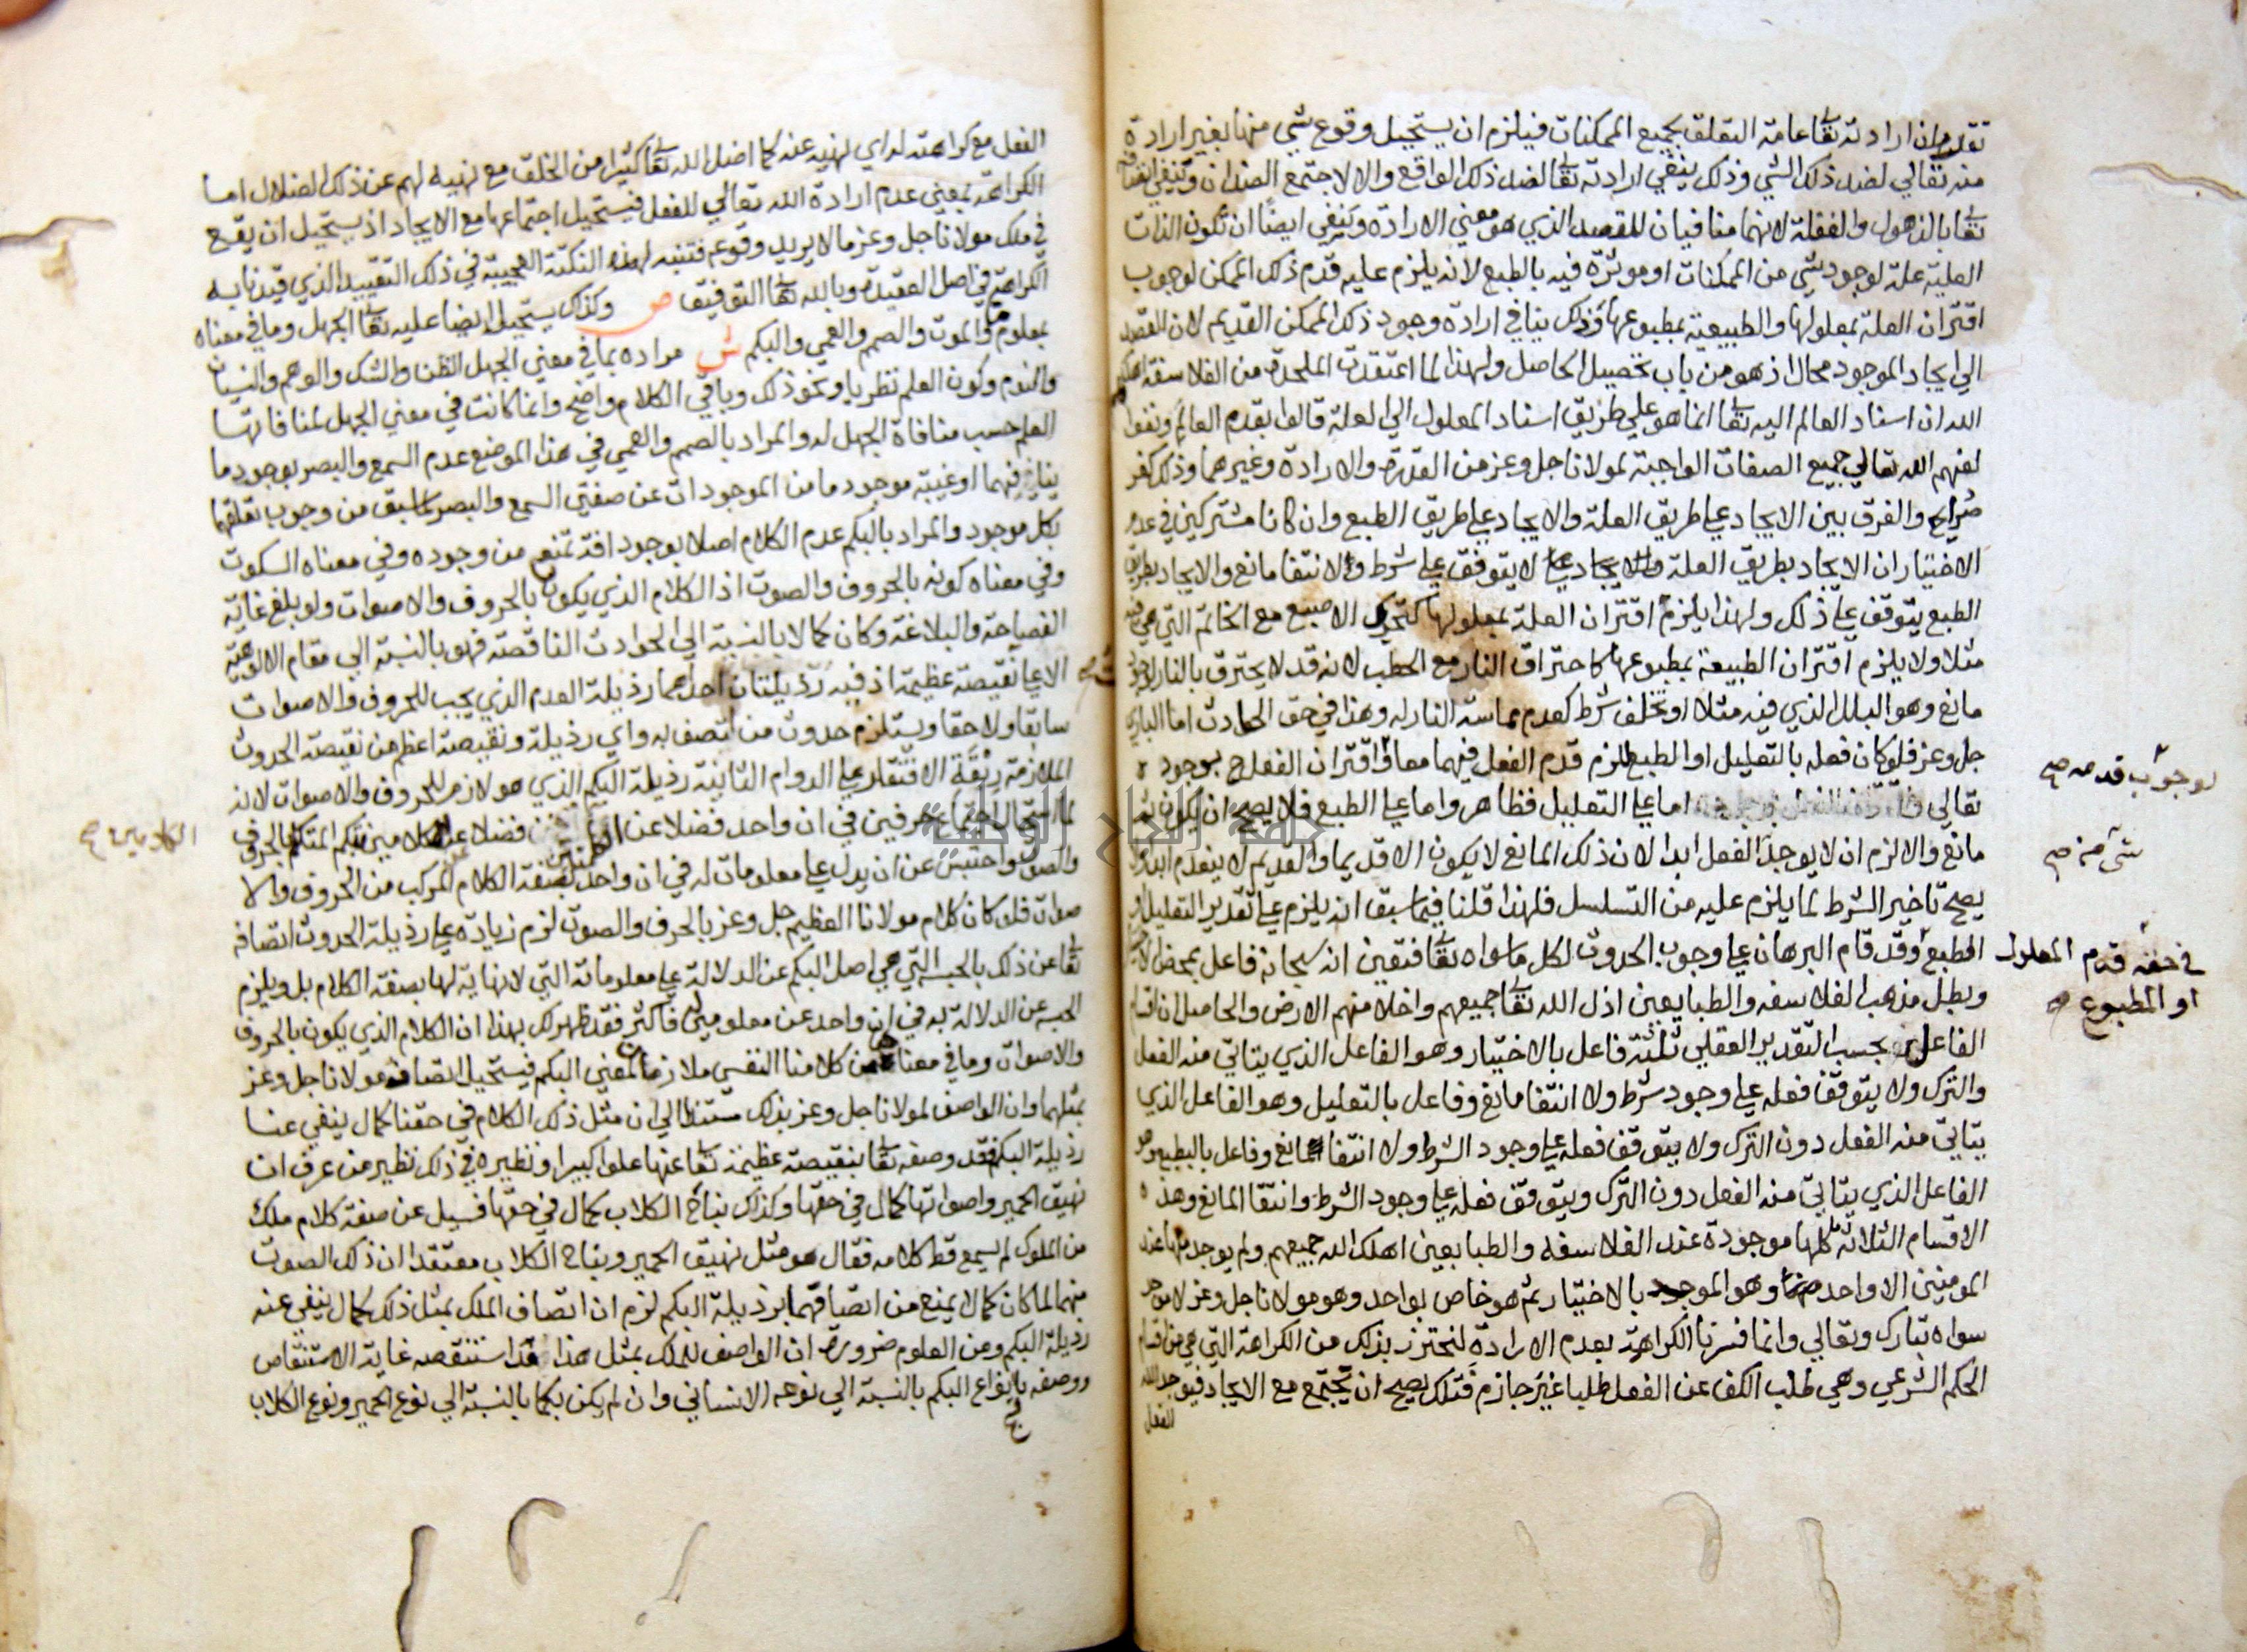 تقدم ان ارادته تقا عامة التعلق بجميع الممكنات فيلزم ان يستحيل وقوع شي منها بغير ارادة
منه تقالي لضد ذلك الشي وذلك ينفي ارادته تقا لضد ذلك الواقع والا لاجتمع الضدان وتنفي اتصافه
تقا بالذهول والغفلة لانهما منافيان للقصد الذي هو معني الارادة وينفي ايضا ان تكون الذات
العلية علة لوجود شي من الممكنات او موثرة فيه بالطبع لانه يلزم عليه قدم ذلك الممكن لوجوب
اقتران العلة بمعلولها والطبيعية بمطبوعها وذلك ينافي ارادة وجود ذلك الممكن القديم لان القصد
الي ايجاد الموجود محال اذ هو من باب تحصيل الحاصل ولهذا لما اعتقدت الملحدة من الفلاسفة اهلكهم
الله ان اسناد العالم اليه تقا انما هو علي طريق اسناد المعلول الي العلة قالوا بقدم العالم ونفوا
لعنهم الله تعالي جميع الصفات الواجبة لمولانا جل وعز من القدرة والارادة وغيرهما وذلك كفر
صراح والفرق بين الايجاد علي طريق العلة والايجاد علي طريق الطبع وان كانا مشتركين في عدم
الاختيار ان الايجاد بطريق العلة لا يتوقف علي شرط ولا انتفا مانع والايجاد بطريق
الطبع يتوقف علي ذلك ولهذا يلزم اقتران العلة بمعلولها كتحرك الاصبع مع الخاتم التي هي فيه
مثلا ولا يلزم اقتران الطبيعة بمطبوعها كاحتراق النار مع الحطب لانه قد لا يحترق بالنار لوجود
مانع وهو البلل الذي فيه مثلا او تخلف شرط كعدم مماسة النار له وهذا في حق الحادث اما الباري
جل وعز فلو كان فعله بالتعليل او الطبع للزم قدم الفعل فيهما معا واقتران الفعل ح بوجوده
لوجوب قدمه صح
تقالي اما علي التعليل فظاهر واما علي الطبع فلا يصح ان يكون ثم
مانع والا لزم ان لا يوجد الفعل ابدا لان ذلك المانع لا يكون الا قديما والقديم لا ينعدم ابدا ولا
شي منه صح
يصح تاخير الشرط لما يلزم عليه من التسلسل فلهذا قلنا فيما سبق انه يلزم علي تقدير التعليل او
الطبع وقد قام البرهان علي وجوب الحدوث لكل ما سواه تقا فتعين انه سبحانه فاعل بمحض الاختيار
في حقه قدم المعلول
او المطبوع صح
وبطل مذهب الفلاسفه والطبايعين اذل الله تقا جميعهم واخلا منهم الارض والحاصل ان اقسام
الفاعل بحسب التقدير العقلي ثلثة فاعل بالاختيار وهو الفاعل الذي يتاتي منه الفعل
والترك ولا يتوقف فعله علي وجود شرط ولا انتفا مانع وفاعل بالتعليل وهو الفاعل الذي
يتاتي منه الفعل دون الترك ولا يتوقف فعله علي وجود الشرط ولا انتفا مانع وفاعل بالطبع وهو
الفاعل الذي يتاتي منه الفعل دون الترك ويتوقف فعله علي وجود الشرط وانتفا المانع وهذه
الاقسام الثلاثة كلها موجودة عند الفلاسفه والطبايعين اهلك الله جميعهم ولم يوجد منها عند
المومنين الا واحد منها وهو الموجد بالاختيار ثم هو خاص بواحد وهو مولانا جل وعز لا موجد
سواه تبارك وتعالي وانما فسرنا الكراهة بعدم الارادة لنحترز بذلك من الكراهة التي هي من اقسام
الحكم الشرعي وهي طلب الكف عن الفعل طلبا غير جازم فتلك يصح ان تجتمع مع الايجاد فيوجد الله
الفعل
الفعل مع كراهته له اي لنهيه عنه كما اضل الله تقا كثيرا من الخلق مع نهيه لهم عن ذلك الضلال اما
الكراهة بمعني عدم ارادة الله تعالي للفعل فيستحيل اجتماعها مع الايجاد اذ يستحيل ان يقع
في ملك مولانا جل وعز ما لا يريد وقوعه فتنبه لهذه النكتة العجيبة في ذلك التقييد الذي قيدنا به
الكراهة في اصل العقيدة وبالله تقا التوفيق ص وكذلك يستحيل ايضا عليه تقا الجهل وما في معناه
بمعلوم ما والموت والصمم والعمي والبكم ش مراده بما في معني الجهل الظن والشك والوهم والنسيان
والنوم وكون العلم نظريا ونحو ذلك وباقي الكلام واضح وانما كانت في معني الجهل لمنافاتها
العلم حسب منافاة الجهل له والمراد بالصمم والعمي في هذا الموضع عدم السمع والبصر بوجود ما
ينافيهما او غيبة موجود ما من الموجودات عن صفتي السمع والبصر لما سبق من وجوب تعلقهما
بكل موجود والمراد بالبكم عدم الكلام اصلا بوجود افة تمنع من وجوده وفي معناه السكوت
وفي معناه كونه بالحروف والصوت اذ الكلام الذي يكون بالحروف والاصوات ولو بلغ غاية
الفصاحة والبلاغة وكان كمالا بالنسبة الي الحوادث الناقصة فهو بالنسبة الي مقام الالوهية
الاعيا نقيصة عظيمة اذ فيه رذيلتان احداهما رذيلة العدم الذي يجب للحروف والاصوات
سابقا ولاحقا ويستلزم حدوث من اتصف به واي رذيلة ونقيصة اعظم من نقيصة الحدوث
الملازمة ربقة الافتقار علي الدوام الثانية رذيلة البكم الذي هو لازم للحروف والاصوات لانه
لما استحال اجتماع حرفين في ان واحد فضلا عن الكلمتين فضلا عن الكلامين تبكم المتكلم بالحرف
الكلامين صح
والصوت واحتبس عن ان يدل علي معلومات له في ان واحد بصفة الكلام المركب من الحروف والا
صوات فلو كان كلام مولانا العظيم جل وعز بالحرف والصوت لزم زيادة علي رذيلة الحدوث اتصافه
تقا عن ذلك بالحبسة التي هي اصل البكم عن الدلالة علي معلوماته التي لا نهاية لها بصفة الكلام بل ويلزم
الحبسة عن الدلالة به في ان واحد عن معلومين فاكثر فقد ظهر لك بهذا ان الكلام الذي يكون بالحروف
والاصوات وما في معناه من كلامنا النفسي ملازم لمعني البكم فيستحيل اتصاف مولانا جل وعز
بمثلهما وان الواصف لمولانا جل وعز بذلك مستندا الي ان مثل ذلك الكلام في حقنا كمال ينفي عنا
رذيلة البكم فقد وصفه تقا بنقيصة عظيمة تقا عنها علوا كبيرا ونظيره في ذلك نظير من عرف ان
نهيق الحمير واصواتها كمال في حقها وكذلك نباح الكلاب كمال في حقها فسيل عن صفة كلام ملك
من الملوك لم يسمع قط كلامه فقال هو مثل نهيق الحمير ونباح الكلاب معتقدا ان ذلك الصوت
منهما لما كان كمالا يمنع من اتصافهما برذيلة البكم لزم ان اتصاف الملك بمثل ذلك كمال ينفي عنه
رذيلة البكم ومن المعلوم ضرورة ان الواصف للملك بمثل هذا قد استنقصه غاية الاستنقاص
ووصفه بانواع البكم بالنسبة الي نوعه الانساني وان لم يكن بكما بالنسبة الي نوع الحمير ونوع الكلاب